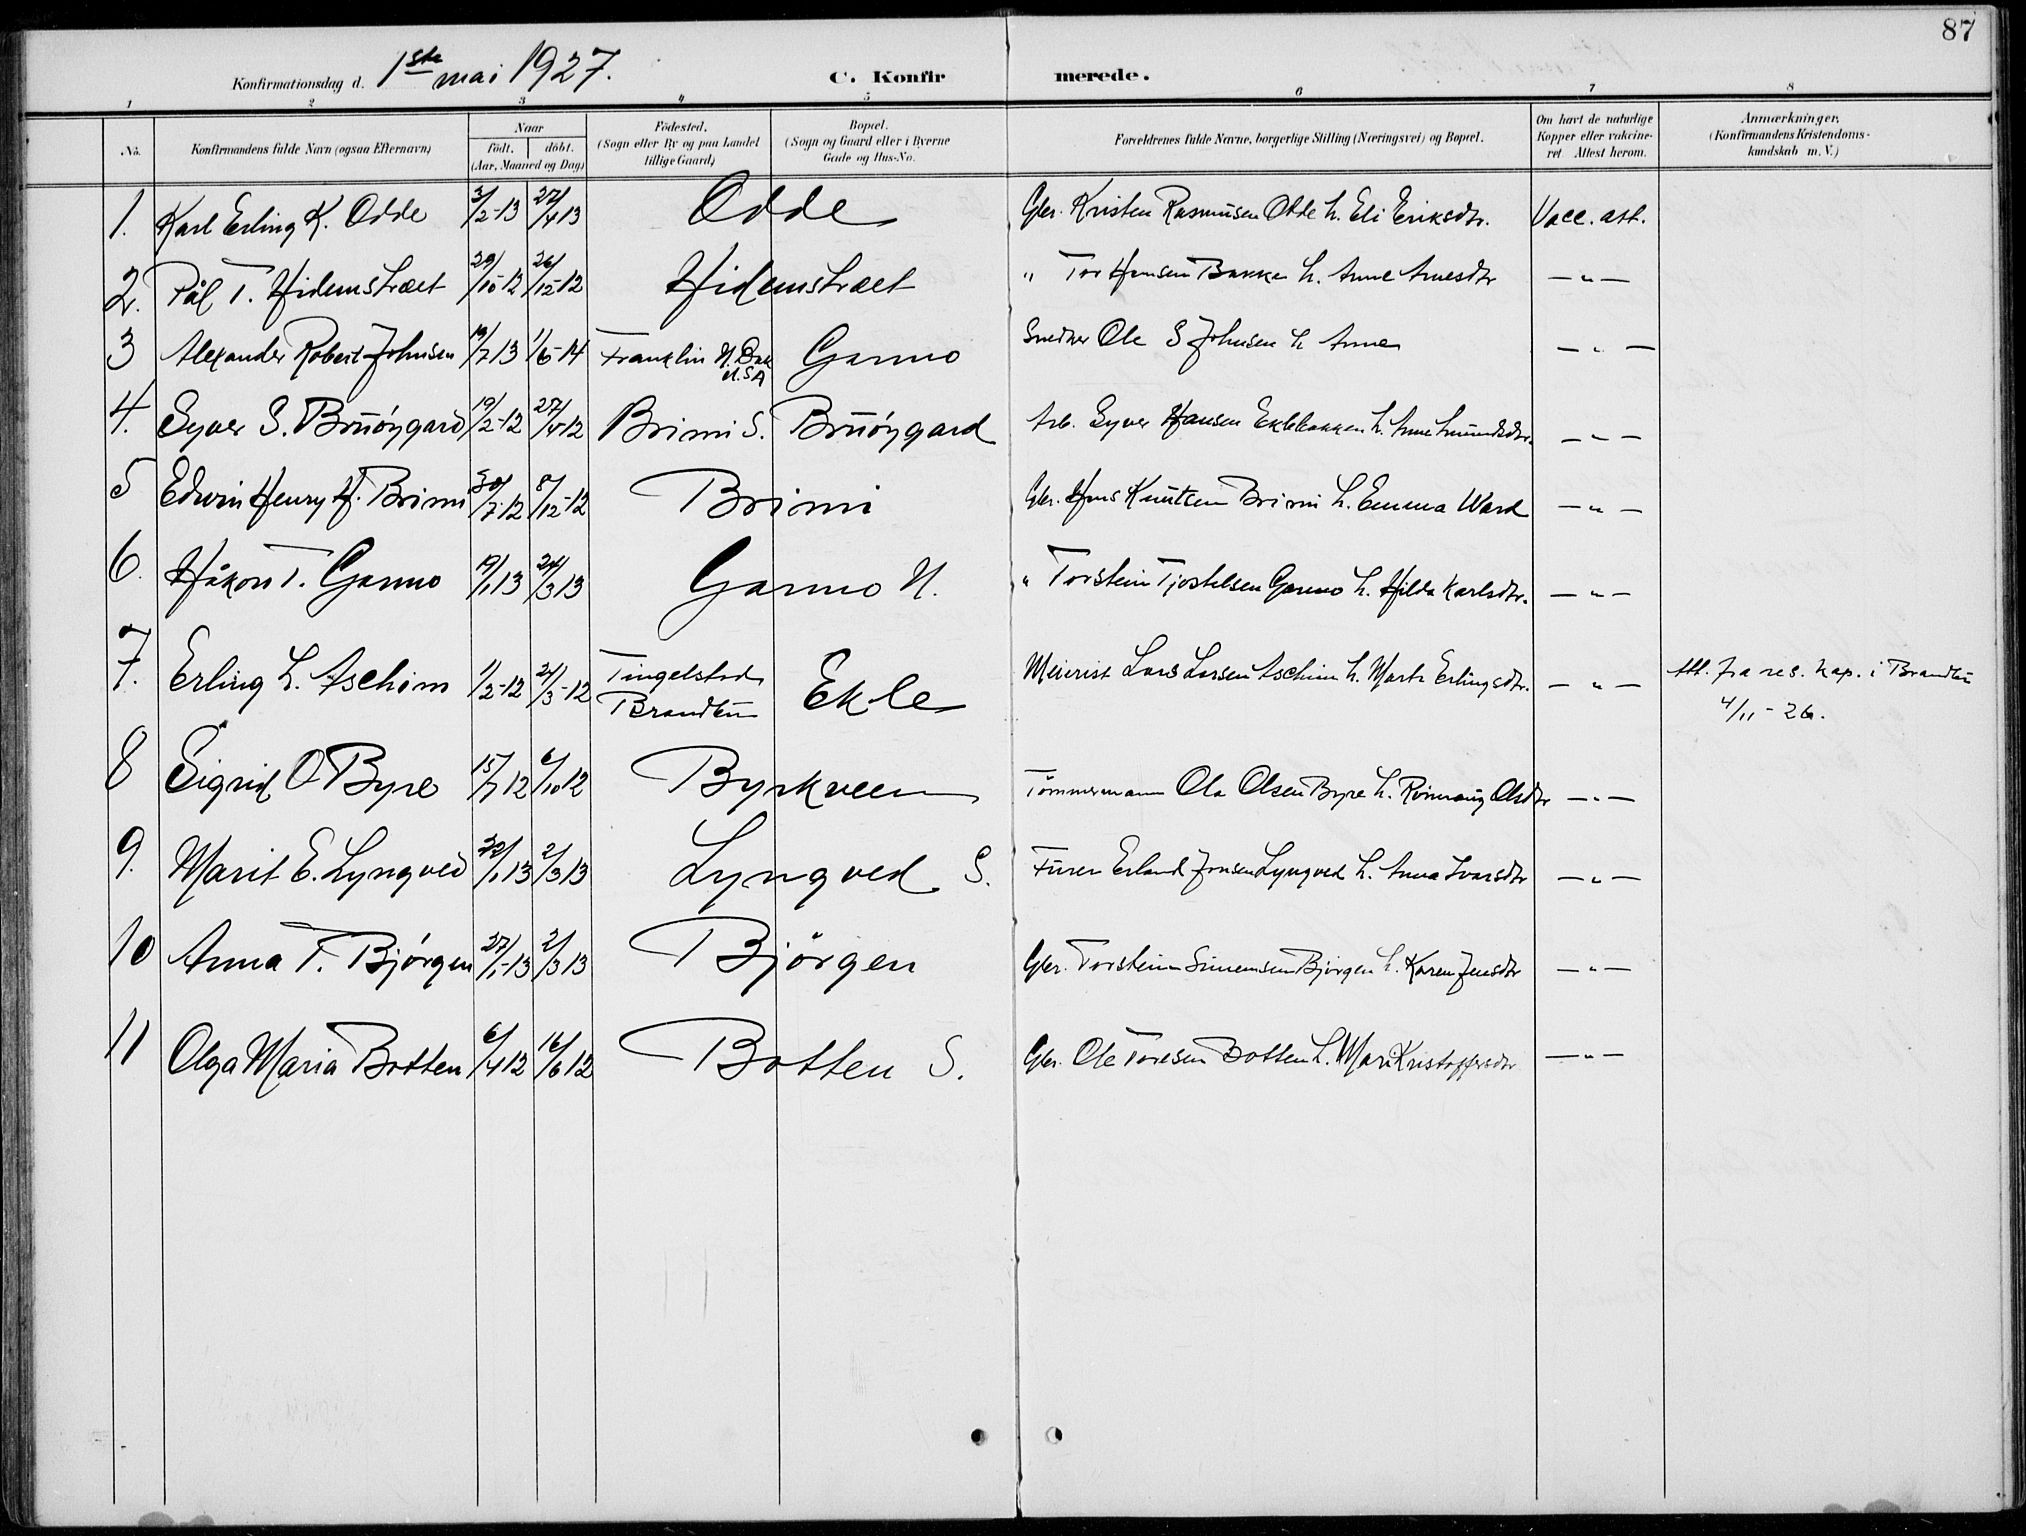 87
Konfirmationsdag d. 1ste mai 1927. C. Konfirmerede.
1 2 3 4 5 6 7 8
No. Konfirmandens fulde Navn (ogsaa Efternavn) Naar födt. döbt. (Aar, Maaned og Dag) Födested. (Sogn eller By og paa Landet tillige Gaard) Bopæl. (Sogn og Gaard eller i Byerne Gade og Hus-No. Forældrenes fulde Navne, borgerlige Stilling (Næringsvei) og Bopæl. Om havt de naturlige Kopper eller vakcineret Attest herom. Anmærkninger, (Konfirmandens Kristendomskundskab m. V.)
1. Karl Erling K. Odde 3/2-13 27/4 13 Odde Gbr. Kristen Rasmusen Odde h. Eli Eriksdtr. Vacc. att.
2. Pål T. Hidemstræet 29/10-12 26/12-12 Hidemstræet " Tor Hansen Bakke h. Anne Arnesdtr — " —
3 Alexander Robert Johnsen 19/7 13 1/6-14 Franklin N. Dak U.S.A Garmo Snedker Ole S Johnsen h Anne — " —
4. Syver S. Bruøygard 19/2-12 27/4 12 Brimi S. Bruøygard Arb. Syver Hansen Eklebakken h. Anne Amundsdtr. — " —
5 Edwin Henry H. Brimi 30/7-12 8/12-12 Brimi Gbr. Hans Knutsen Brimi h. Emma Ward — " —
6. Håkon T. Garmo 19/1 13 24/3 13 Garmo N. " Torstein Tjostelsen Garmo h. Hilda Karlsdtr. — " —
7. Erling L. Aschim 1/2-12 24/3-12 Tingelstad Brandbu Ekle Meierist Lars Larsen Aschim h. Marte Erlingsdtr. — " — Att. fra res. kap. i Brandbu 4/11-26.
8 Sigrid O Byre 15/7 12 6/10 12 Byrkveen Tömmermann Ola Olsen Byre h. Rönnaug Olsdtr — " —
9. Marit E. Lyngved 22/1 13 2/3 13 Lyngved S. Furer Erland Jonsen Lyngved h. Anna Ivarsdtr — " —
10 Anna T. Bjørgen 27/1-13 2/3 13 Bjørgen Gbr. Torstein Simensen Bjørgen h. Karen Jensdtr — " —
11 Olga Maria Botten 6/4 12 16/6 12 Botten S. Gbr. Ole Toresen Botten h. Mari Kristoffersdtr — " —